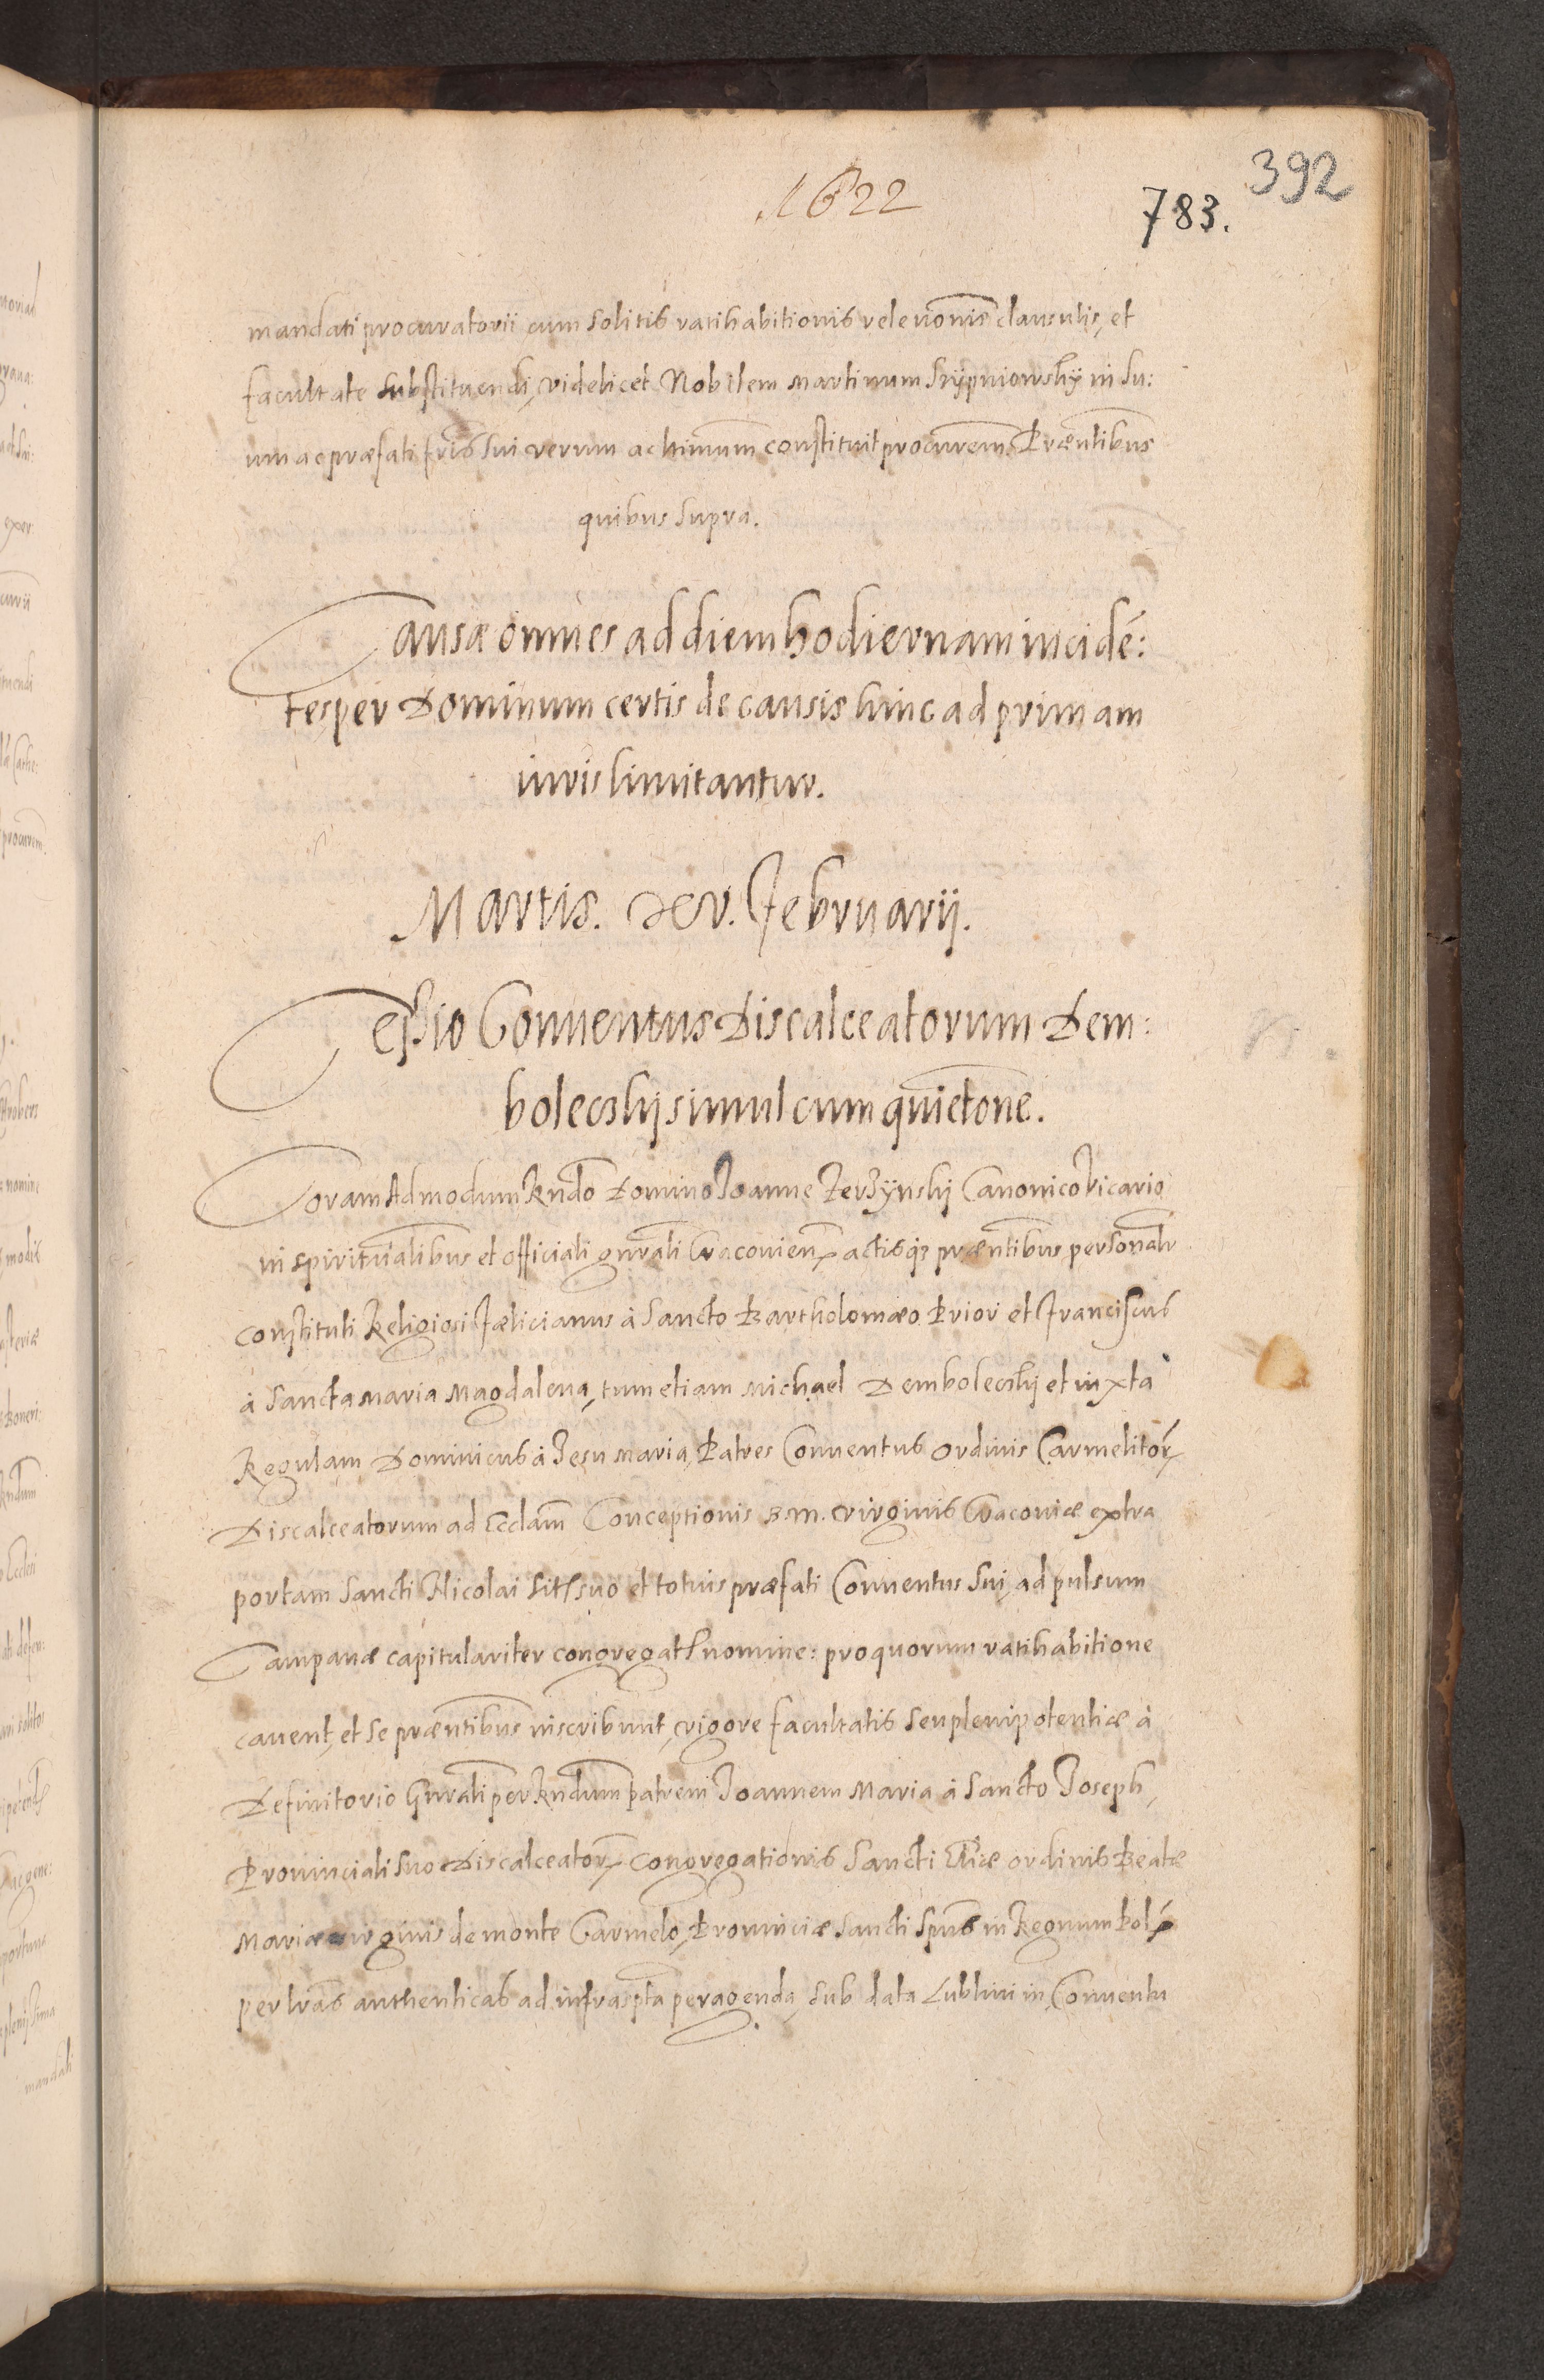 1622
392
783.
mandati procuratorii cum solitis ratihabitionis releuonis clausulis, et
facultate substituendi, videlicet Nobilem Martinum Srzypniowsky in su:
um ac præfati fris sui verum ac ltimum constituit procurem. Præntibus
quibus supra.
Causæ omnes ad diem hodiernam inciden:
tes per Dominum certis de causis hinc ad primam
iuris limitantur.
Martis. xv. Februarij.
Cessio Conuentus Discalceatorum Dem:
bolecskij simul cum quietone.
Coram Admodum Rndo Domino Joanne Canonico Vicario
in spiritualibus et officiali gnrali Cracouien actisq3 præntibus personalr
constituti Religiosi Fælicianus à Sancto Bartholomæo Prior et Franciscus
à Sancta Maria Magdalena, tum etiam Michael Dembolecskij et iuxta
Regulam Dominicus à Jesu Maria, Patres Conuentus Ordinis Carmelitor
Discalceatorum ad Ecclam Conceptionis B. M. Virginis Cracoviæ extra
portam Sancti Nicolai sit suo et totius præfati Conuentus sui, ad pulsum
Campanæ capitulariter congregat nomine: pro quorum ratihabitione
cauent, et se præntibus inscribunt, vigore facultatis seu plenipotentiæ à
Definitorio Gnrali per Rndum patrem Joannem Maria à Sancto Joseph,
Prouinciali suo Discalceator Congregationis Sancti Eliæ ordinis Beatæ
Mariæ virginis de monte Carmelo, Prouinciæ Sancti Spus in Regnum Pol
per lras authenticas ad infraspta peragenda, sub data Lublini in Conuentu